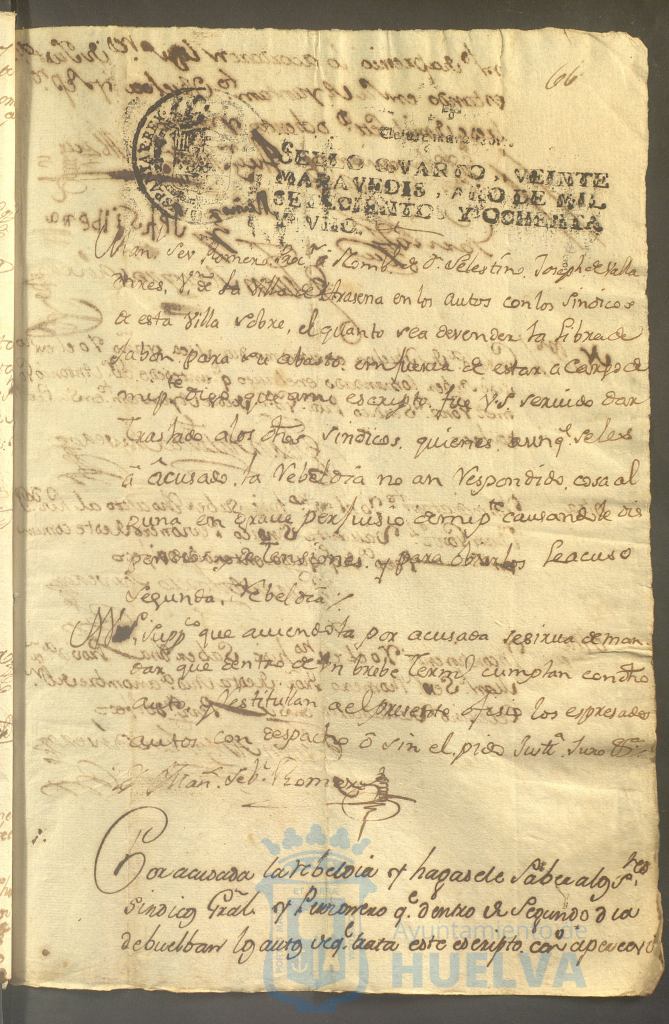 66
SELLO QVARTO, VEINTE
MARAVEDIS, AÑO DE MIL
SETECIENTOS Y OCHENTA
Y VNO.
Man. Sev. Romero, en Nombre de D. Selestino Joseph de Valla
dares, V.º de la Villa de Arasena en los autos con los Sindicos
de esta Villa sobre, el quanto sea devender la libra de
Jabon para su abasto en fuerza de estar a Cargo de
mi p.te Digo que amo escripto fue VS servido dar
Traslado a los dhos Sindicos, quienes aunq.e seles
â acusado, la Rebeldia no an Respondido, cosa al
guna en grave perjuisio de mi p.te causandole dis
pendios y Estensiones, y para obiarlos leacuso
Segunda, Rebeldia /
A VS, Supp.co que auiendola por acusada sesirua deman
dar que dentro de Vn brebe Term.no cumplan con dho
auto, y Restituian a el presente ofisio los espresados
autos con despacho ô sin el, pido Just.a Juro &.a
D. Man. Seb. Romero
Por acusada la rebeldia y hagasele Saber a los S.res
Sindico Gral y Personero q.e dentro de Segundo dia
debuelban los autos de q.e trata este escripto con apercevi
Ayuntamiento de
HUELVA